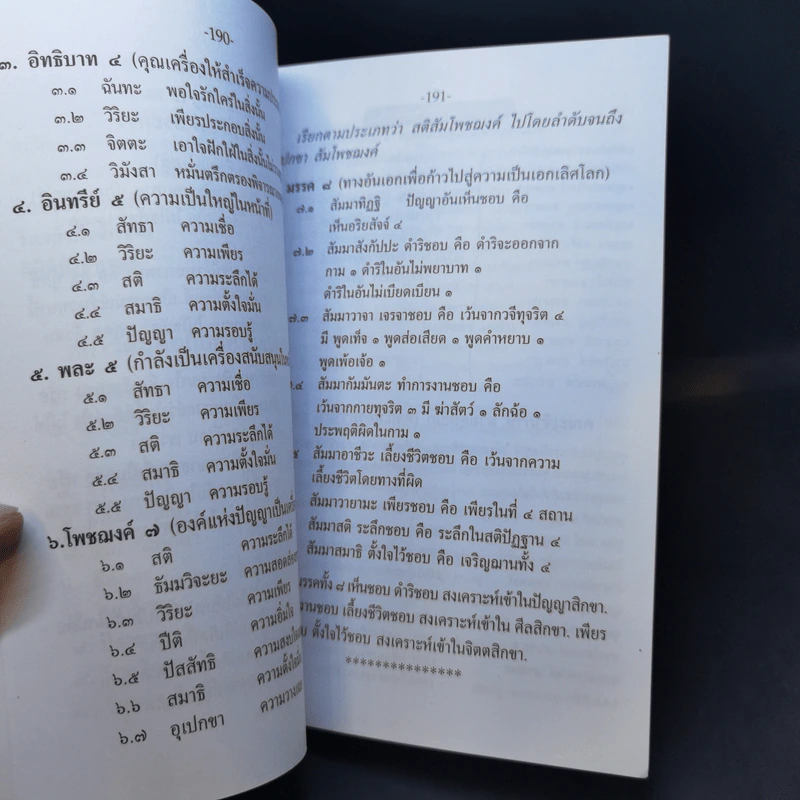 -190-
๓. อิทธิบาท ๔ (คุณเครื่องให้สำเร็จความ
๓.๑ ฉันทะ พอใจรักใคร่ในสิ่งนั้น
๓.๒ วิริยะ เพียรประกอบสิ่งนั้น
๓.๓ จิตตะ เอาใจฝักใฝ่ในสิ่งนั้น
๓.๔ วิมังสา หมั่นตริกตรอง
๔. อินทรีย์ ๕ (ความเป็นใหญ่ในหน้าที่)
๔.๑ สัทธา ความเชื่อ
๔.๒ วิริยะ ความเพียร
๔.๓ สติ ความระลึกได้
๔.๔ สมาธิ ความตั้งใจมั่น
๔.๕ ปัญญา ความรอบรู้
๕. พละ ๕ (กำลังเป็นเครื่องสนับสนุน
๕.๑ สัทธา ความเชื่อ
๕.๒ วิริยะ ความเพียร
๕.๓ สติ ความระลึกได้
๕.๔ สมาธิ ความตั้งใจมั่น
๕.๕ ปัญญา ความรอบรู้
๖.โพชฌงค์ ๗ (องค์แห่งปัญญาเป็น
๖.๑ สติ ความระลึกได้
๖.๒ ธัมมวิจะยะ ความสอดส่อง
๖.๓ วิริยะ ความเพียร
๖.๔ ปีติ ความอิ่มใจ
๖.๕ ปัสสัทธิ ความสงบ
๖.๖ สมาธิ ความตั้งใจมั่น
๖.๗ อุเปกขา ความวาง
-191-
เรียกตามประเภทว่า สติสัมโพชฌงค์ ไปโดยลำดับจนถึง
เปกขา สัมโพชฌงค์
มรรค ๘ (ทางอันเอกเพื่อก้าวไปสู่ความเป็นเอกเลิศโลก)
๗.๑ สัมมาทิฏฐิ ปัญญาอันเห็นชอบ คือ
เห็นอริยสัจจ์ ๔
๗.๒ สัมมาสังกัปปะ ดำริชอบ คือ ดำริจะออกจาก
กาม ๑ ดำริในอันไม่พยาบาท ๑
ดำริในอันไม่เบียดเบียน ๑
๗.๓ สัมมาวาจา เจรจาชอบ คือ เว้นจากวจีทุจริต ๔
มี พูดเท็จ ๑ พูดส่อเสียด ๑ พูดคำหยาบ ๑
พูดเพ้อเจ้อ ๑
.๔ สัมมากัมมันตะ ทำการงานชอบ คือ
เว้นจากกายทุจริต ๓ มี ฆ่าสัตว์ ๑ ลักฉ้อ ๑
ประพฤติผิดในกาม ๑
๕ สัมมาอาชีวะ เลี้ยงชีวิตชอบ คือ เว้นจากความ
เลี้ยงชีวิตโดยทางที่ผิด
สัมมาวายามะ เพียรชอบ คือ เพียรในที่ ๔ สถาน
สัมมาสติ ระลึกชอบ คือ ระลึกในสติปัฏฐาน ๔
สัมมาสมาธิ ตั้งใจไว้ชอบ คือ เจริญฌานทั้ง ๔
มรรคทั้ง ๘ เห็นชอบ ดำริชอบ สงเคราะห์เข้าในปัญญาสิกขา.
งานชอบ เลี้ยงชีวิตชอบ สงเคราะห์เข้าใน ศีลสิกขา. เพียร
ตั้งใจไว้ชอบ สงเคราะห์เข้าในจิตตสิกขา.
***************